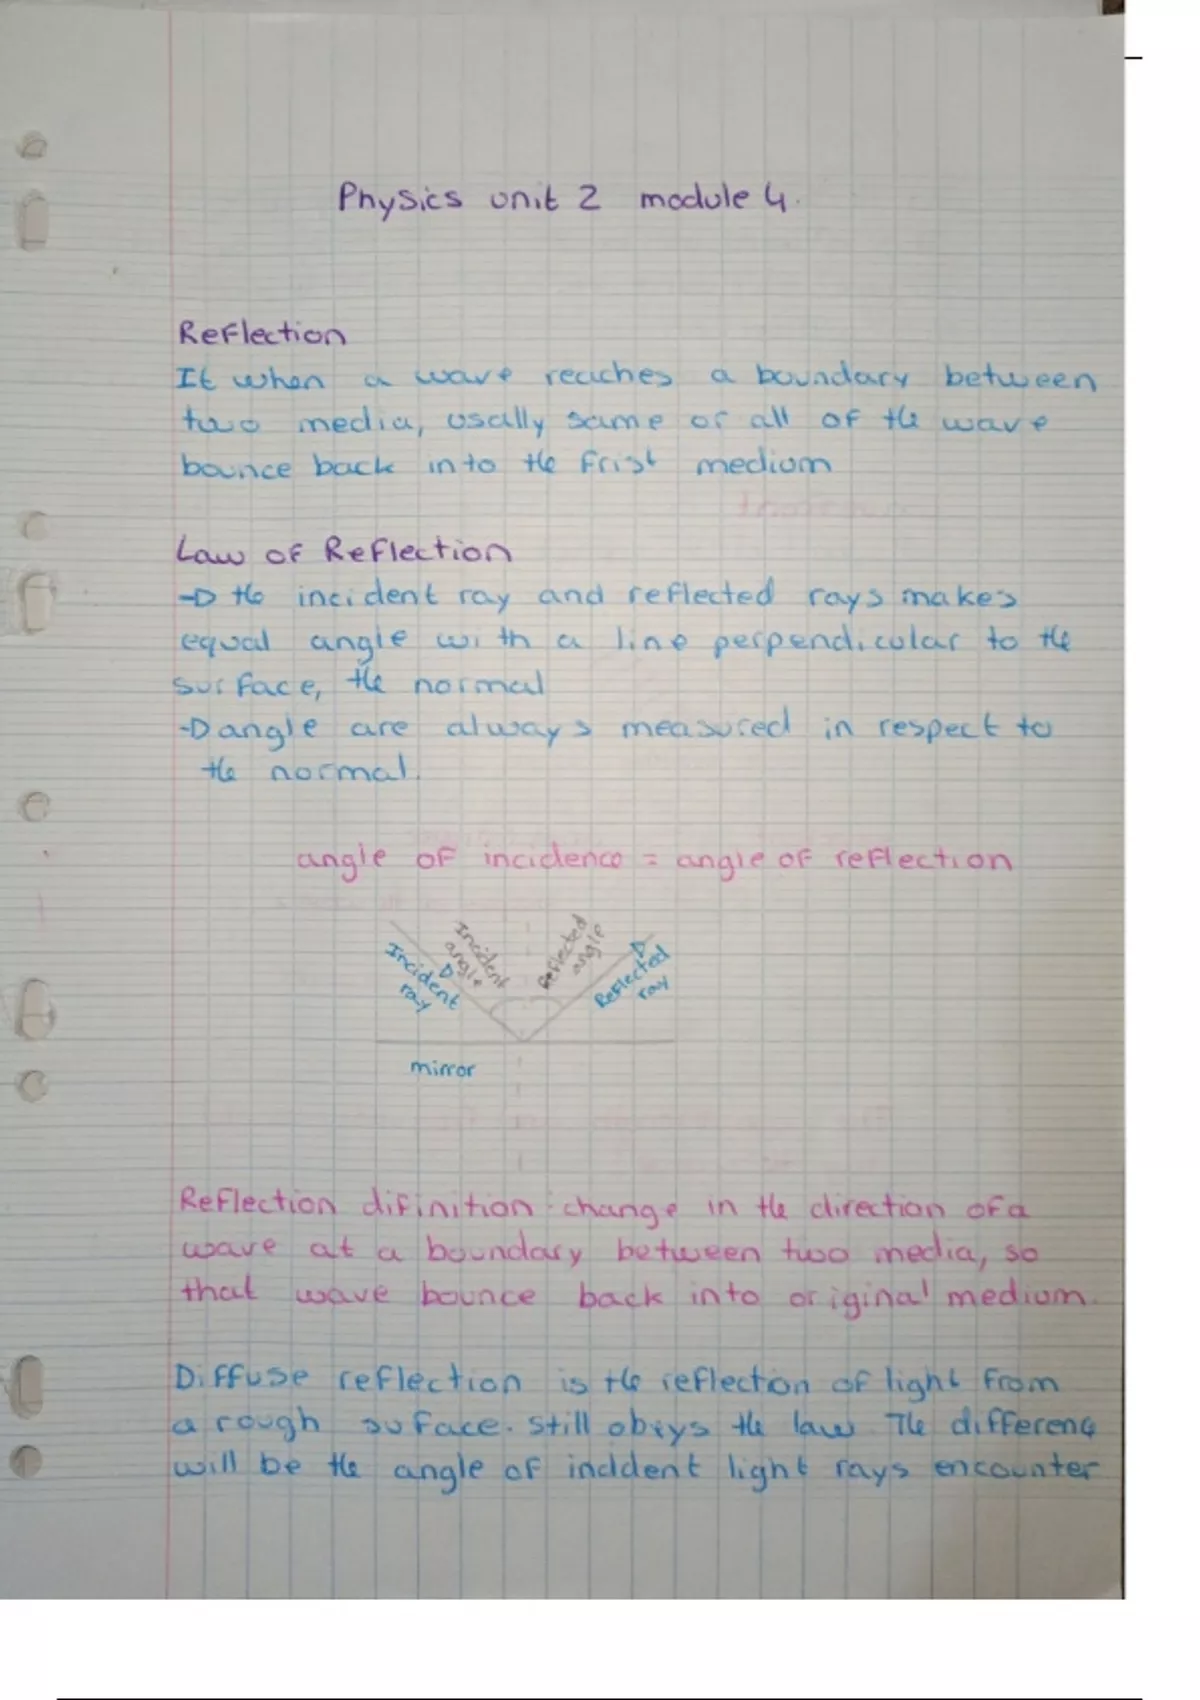 Physics unit 2 module 4.
Reflection
It when a wave reaches a boundary between
two media, usally some or all of the wave
bounce back into the frist medium
Law of Reflection
→ the incident ray and reflected rays makes
equal angle with a line perpendicular to the
surface, the normal
→ angle are always measured in respect to
the normal.
angle of incidence = angle of reflection
Incident angle
Reflected angle
Incident ray
Reflected ray
mirror
Reflection difinition : change in the direction of a
wave at a boundary between two media, so
that wave bounce back into original medium.
Diffuse reflection is the reflection of light from
a rough suface. Still obeys the law. The difference
will be the angle of incident light rays encounter